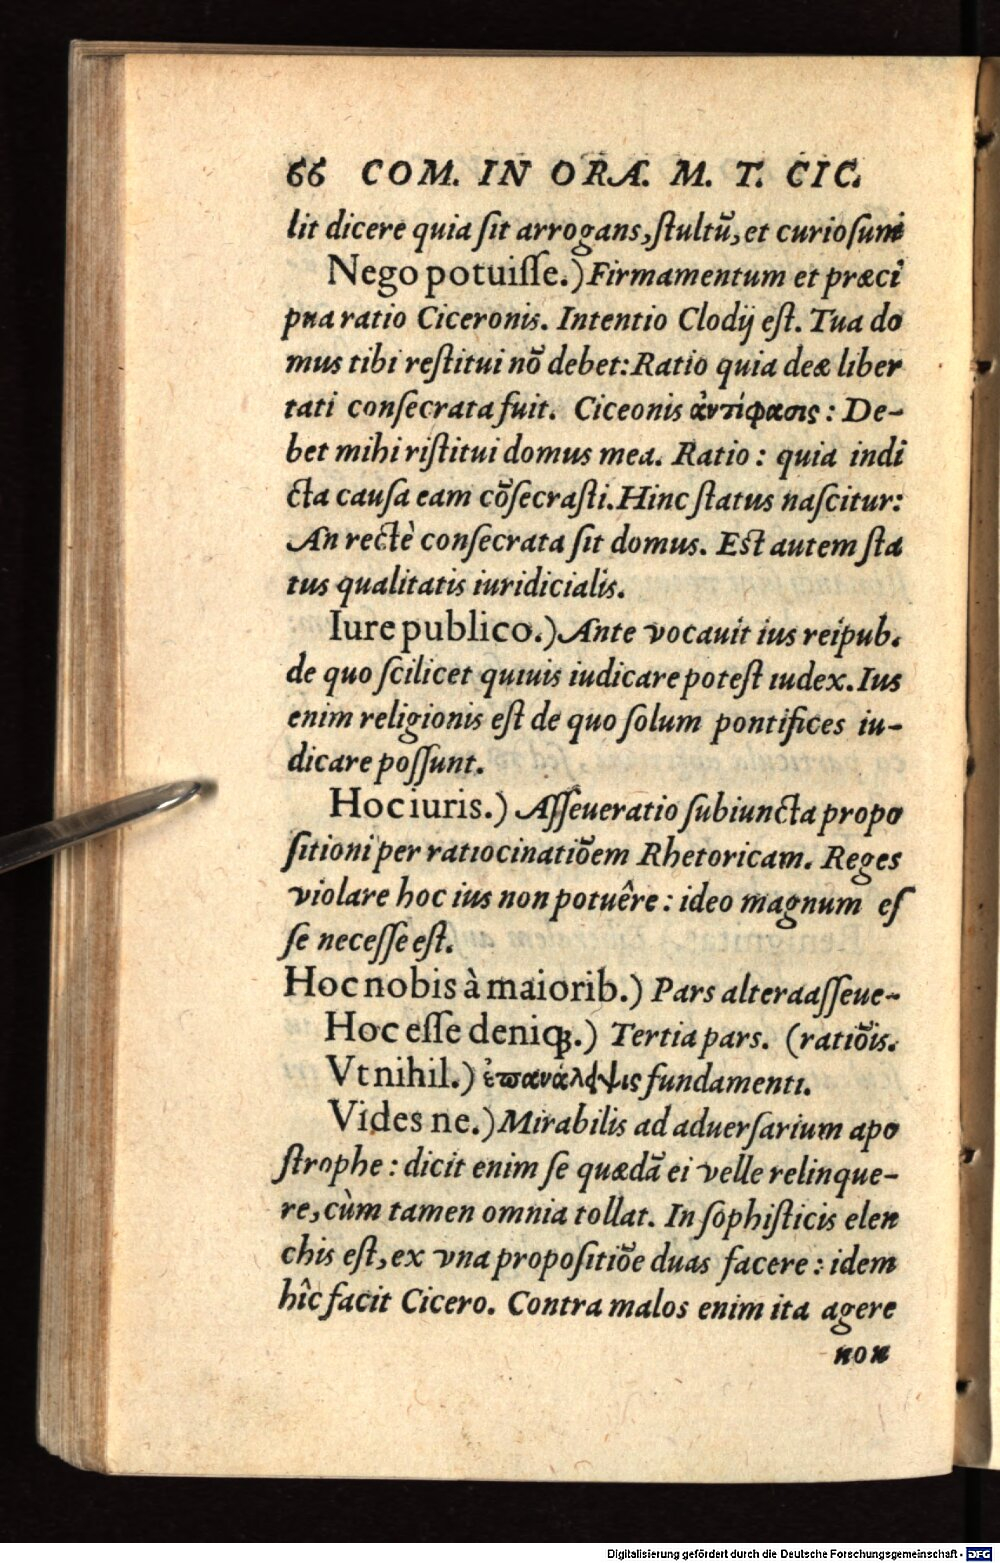 66 COM. IN ORÆ. M. T. CIC.
lit dicere quia ſit arrogans, ſtultū, et curioſum
Nego potuiſſe.) Firmamentum et præci
pua ratio Ciceronis. Intentio Clodij eſt. Tua do
mus tibi reſtitui nō debet: Ratio quia deæ liber
tati conſecrata fuit. Ciceonis ἀντίφασις : De-
bet mihi riſtitui domus mea. Ratio : quia indi
cta cauſa eam cōſecraſti. Hinc ſtatus naſcitur:
An rectè conſecrata ſit domus. Eſt autem ſta
tus qualitatis iuridicialis.
Iure publico.) Ante vocauit ius reipub.
de quo ſcilicet quiuis iudicare poteſt iudex. Ius
enim religionis eſt de quo ſolum pontifices iu-
dicare poſſunt.
Hoc iuris.) Aſſeueratio ſubiuncta propo
ſitioni per ratiocinatiōem Rhetoricam. Reges
violare hoc ius non potuêre : ideo magnum eſ
ſe neceſſe eſt.
Hoc nobis à maiorib.) Pars altera aſſeue-
Hoc eſſe deniq;.) Tertia pars. (ratiōis.
Vt nihil.) ἐπανάληψις fundamenti.
Vides ne.) Mirabilis ad aduerſarium apo
ſtrophe : dicit enim ſe quædā ei velle relinque-
re, cùm tamen omnia tollat. In ſophiſticis elen
chis eſt, ex vna propoſitiōe duas facere : idem
hîc facit Cicero. Contra malos enim ita agere
non
Digitalisierung gefördert durch die Deutsche Forschungsgemeinschaft - DFG